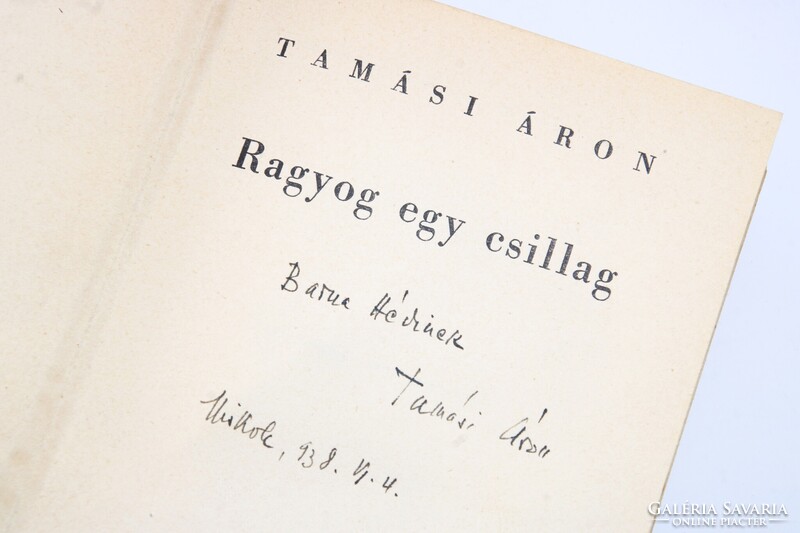 TAMÁSI ÁRON
Ragyog egy csillag
Barna Hédinek
Tamási Áron
Miskolc, 938. VI. 4.
GALÉRIA SAVARIA
ONLINE PIACTÉR